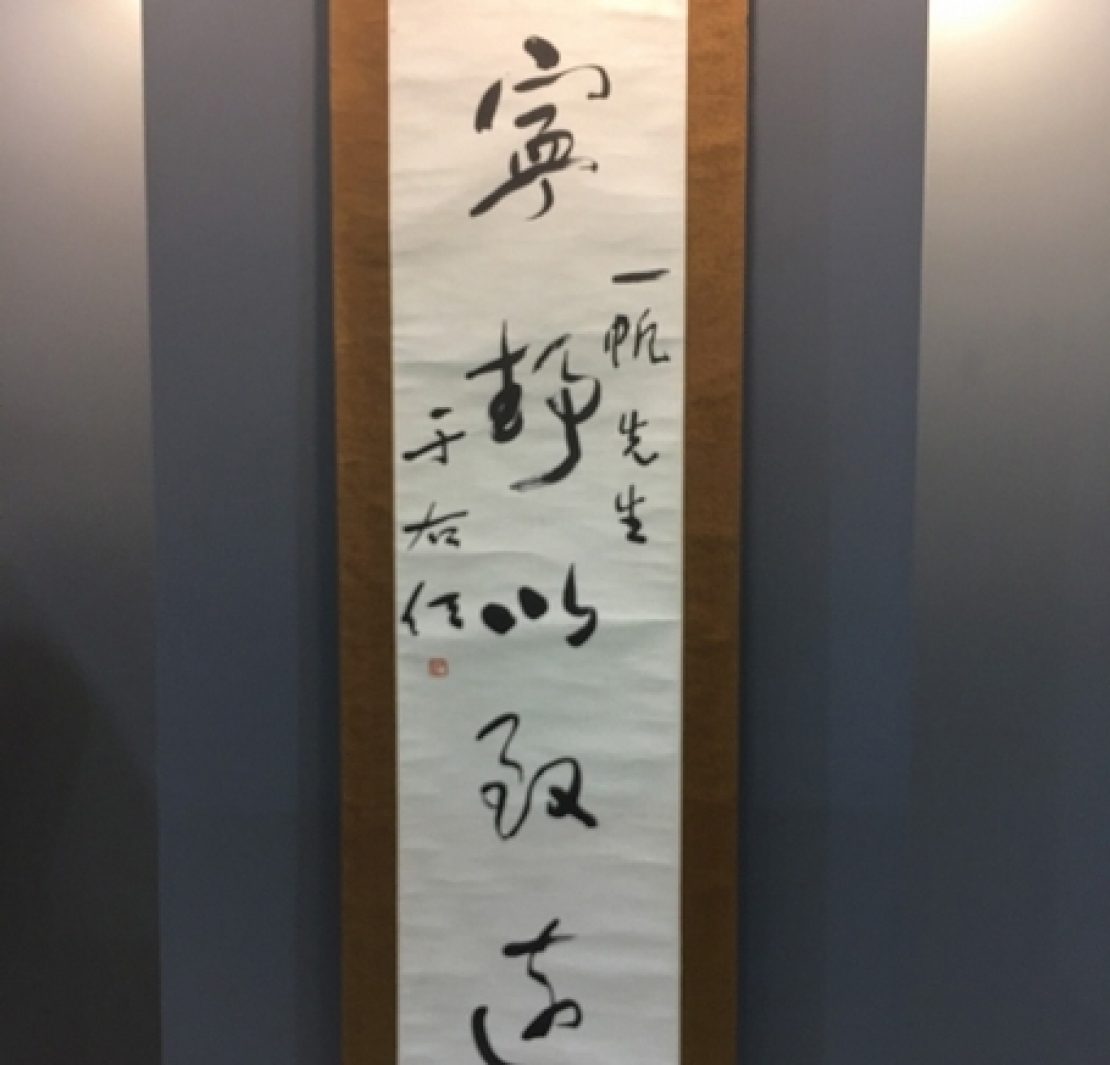 一帆先生
寧静以致遠
于右任